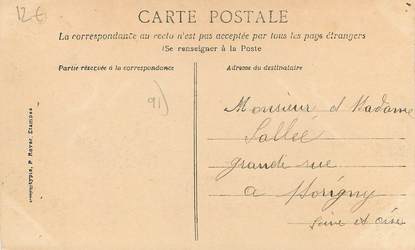 12€
CARTE POSTALE
La correspondance au recto n'est pas acceptée par tous les pays étrangers
(Se renseigner à la Poste
Partie réservée à la correspondance
Adresse du destinataire
91)
Monsieur et Madame
Sallée
grande rue
a Morigny
Seine et Oise
Rayer, Etampes